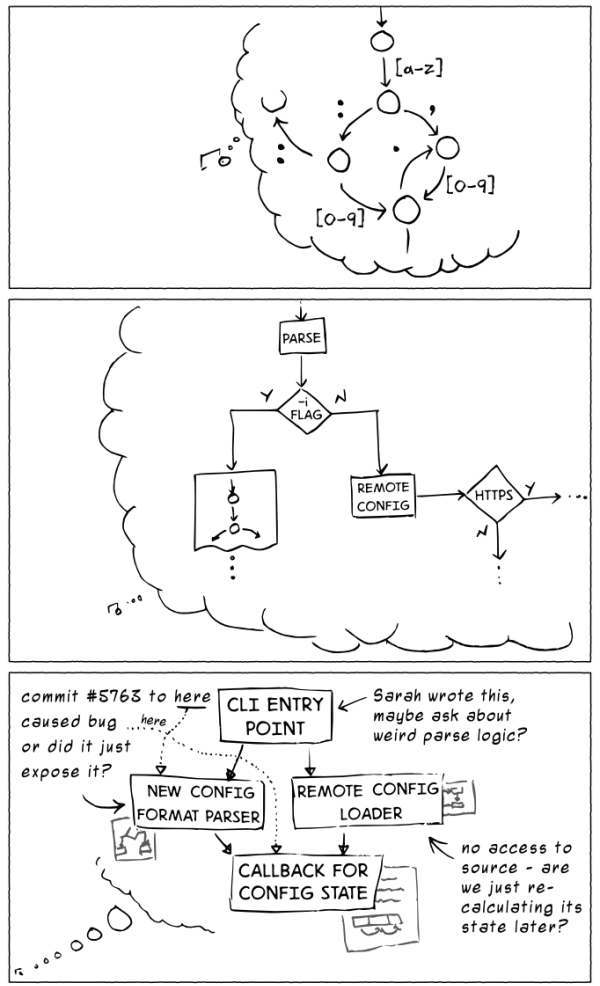 [a-z]
:
,
:
.
[0-9]
[0-9]
PARSE
Y
-i
FLAG
N
REMOTE
CONFIG
HTTPS
Y
...
N
commit #5763 to here
caused bug ... here
or did it just
expose it?
CLI ENTRY
POINT
Sarah wrote this,
maybe ask about
weird parse logic?
NEW CONFIG
FORMAT PARSER
REMOTE CONFIG
LOADER
CALLBACK FOR
CONFIG STATE
no access to
source - are
we just re-
calculating its
state later?